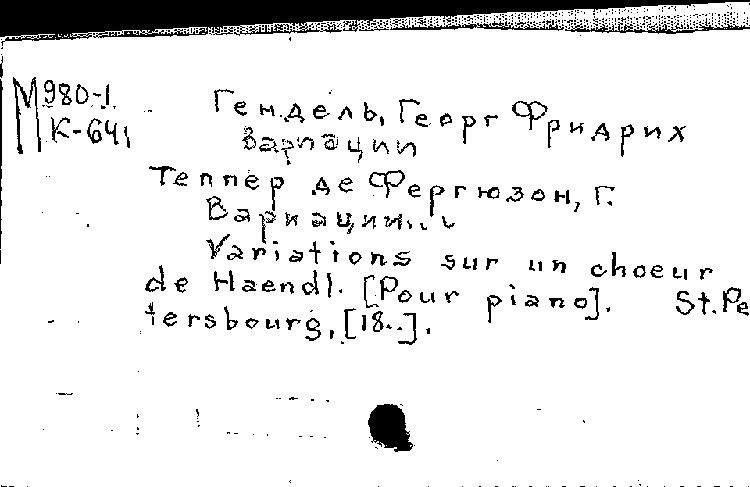 М 980-1
К-641
Гендель, Георг Фридрих
Вариации
Теппер де Фергюзон, Г.
Вариации...
Variations sur un choeur
de Haendl. [Pour piano]. St.Pe
tersbourg, [18..].